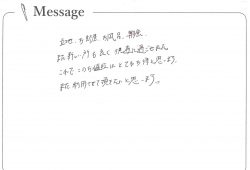 Message
立地、お部屋、お風呂、朝食、
また新しい所も良く快適に過ごせました。
これでこのお値段はとてもお得と思います。
また利用させて頂きたいと思います。